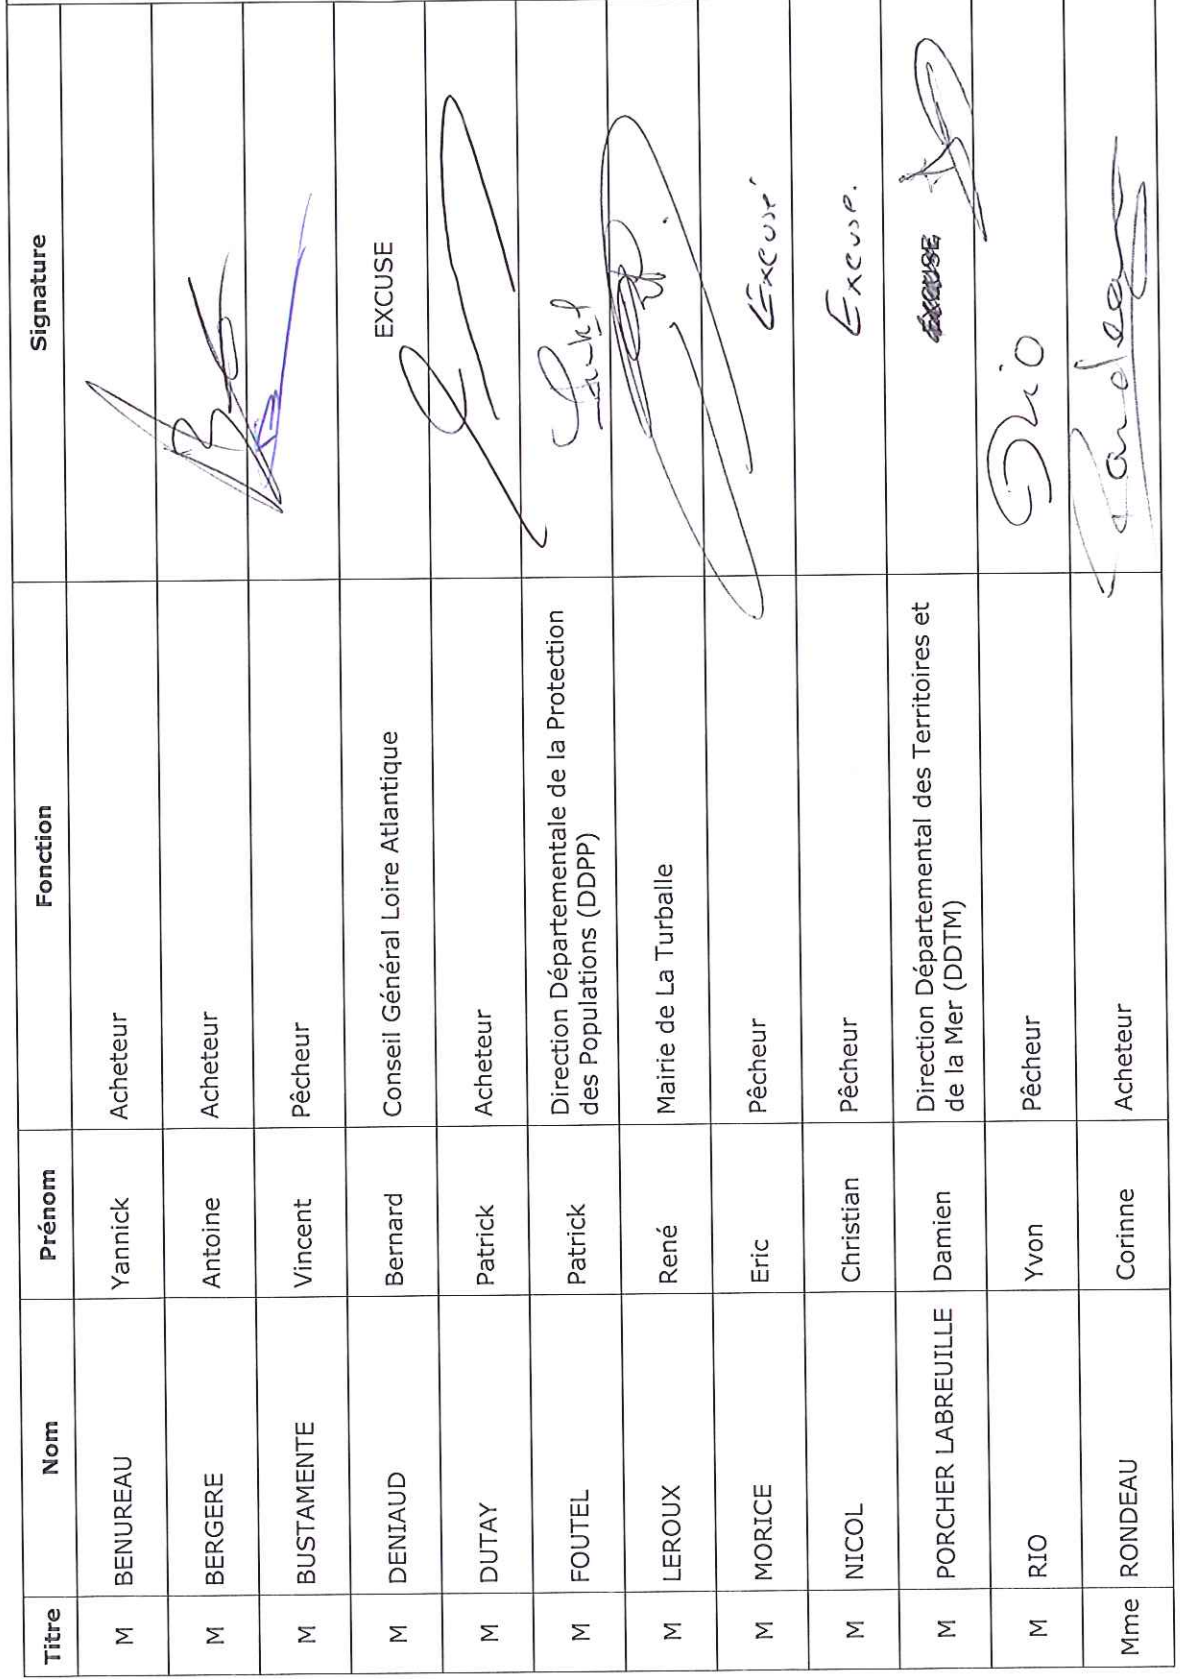 Titre Nom Prénom Fonction Signature
M BENUREAU Yannick Acheteur
M BERGERE Antoine Acheteur
M BUSTAMENTE Vincent Pêcheur
M DENIAUD Bernard Conseil Général Loire Atlantique EXCUSE
M DUTAY Patrick Acheteur
M FOUTEL Patrick Direction Départementale de la Protection
des Populations (DDPP)
M LEROUX René Mairie de La Turballe
M MORICE Eric Pêcheur Excusé
M NICOL Christian Pêcheur Excusé.
M PORCHER LABREUILLE Damien Direction Départemental des Territoires et
de la Mer (DDTM) EXCUSE
M RIO Yvon Pêcheur Rio
Mme RONDEAU Corinne Acheteur Rondeau